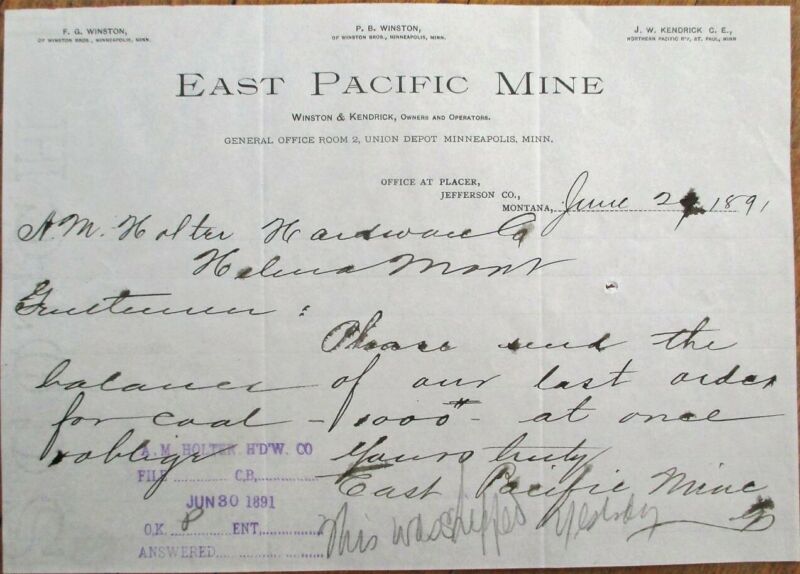 F. G. WINSTON,
OF WINSTON BROS., MINNEAPOLIS, MINN.
P. B. WINSTON,
OF WINSTON BROS., MINNEAPOLIS, MINN.
J. W. KENDRICK C. E.,
NORTHERN PACIFIC R'Y, ST. PAUL, MINN
EAST PACIFIC MINE
WINSTON & KENDRICK, OWNERS AND OPERATORS.
GENERAL OFFICE ROOM 2, UNION DEPOT MINNEAPOLIS, MINN.
OFFICE AT PLACER,
JEFFERSON CO.,
MONTANA, June 29 1891
A. M. Holter Hardware Co
Helena Mont
Gentlemen :
Please send the
balance of our last order
for coal - 1000# - at once
& oblige Yours truly
East Pacific Mine
A. M. HOLTER H'D'W. CO
FILE C.P.
JUN 30 1891
O.K. ENT.
ANSWERED
This was shipped yesterday